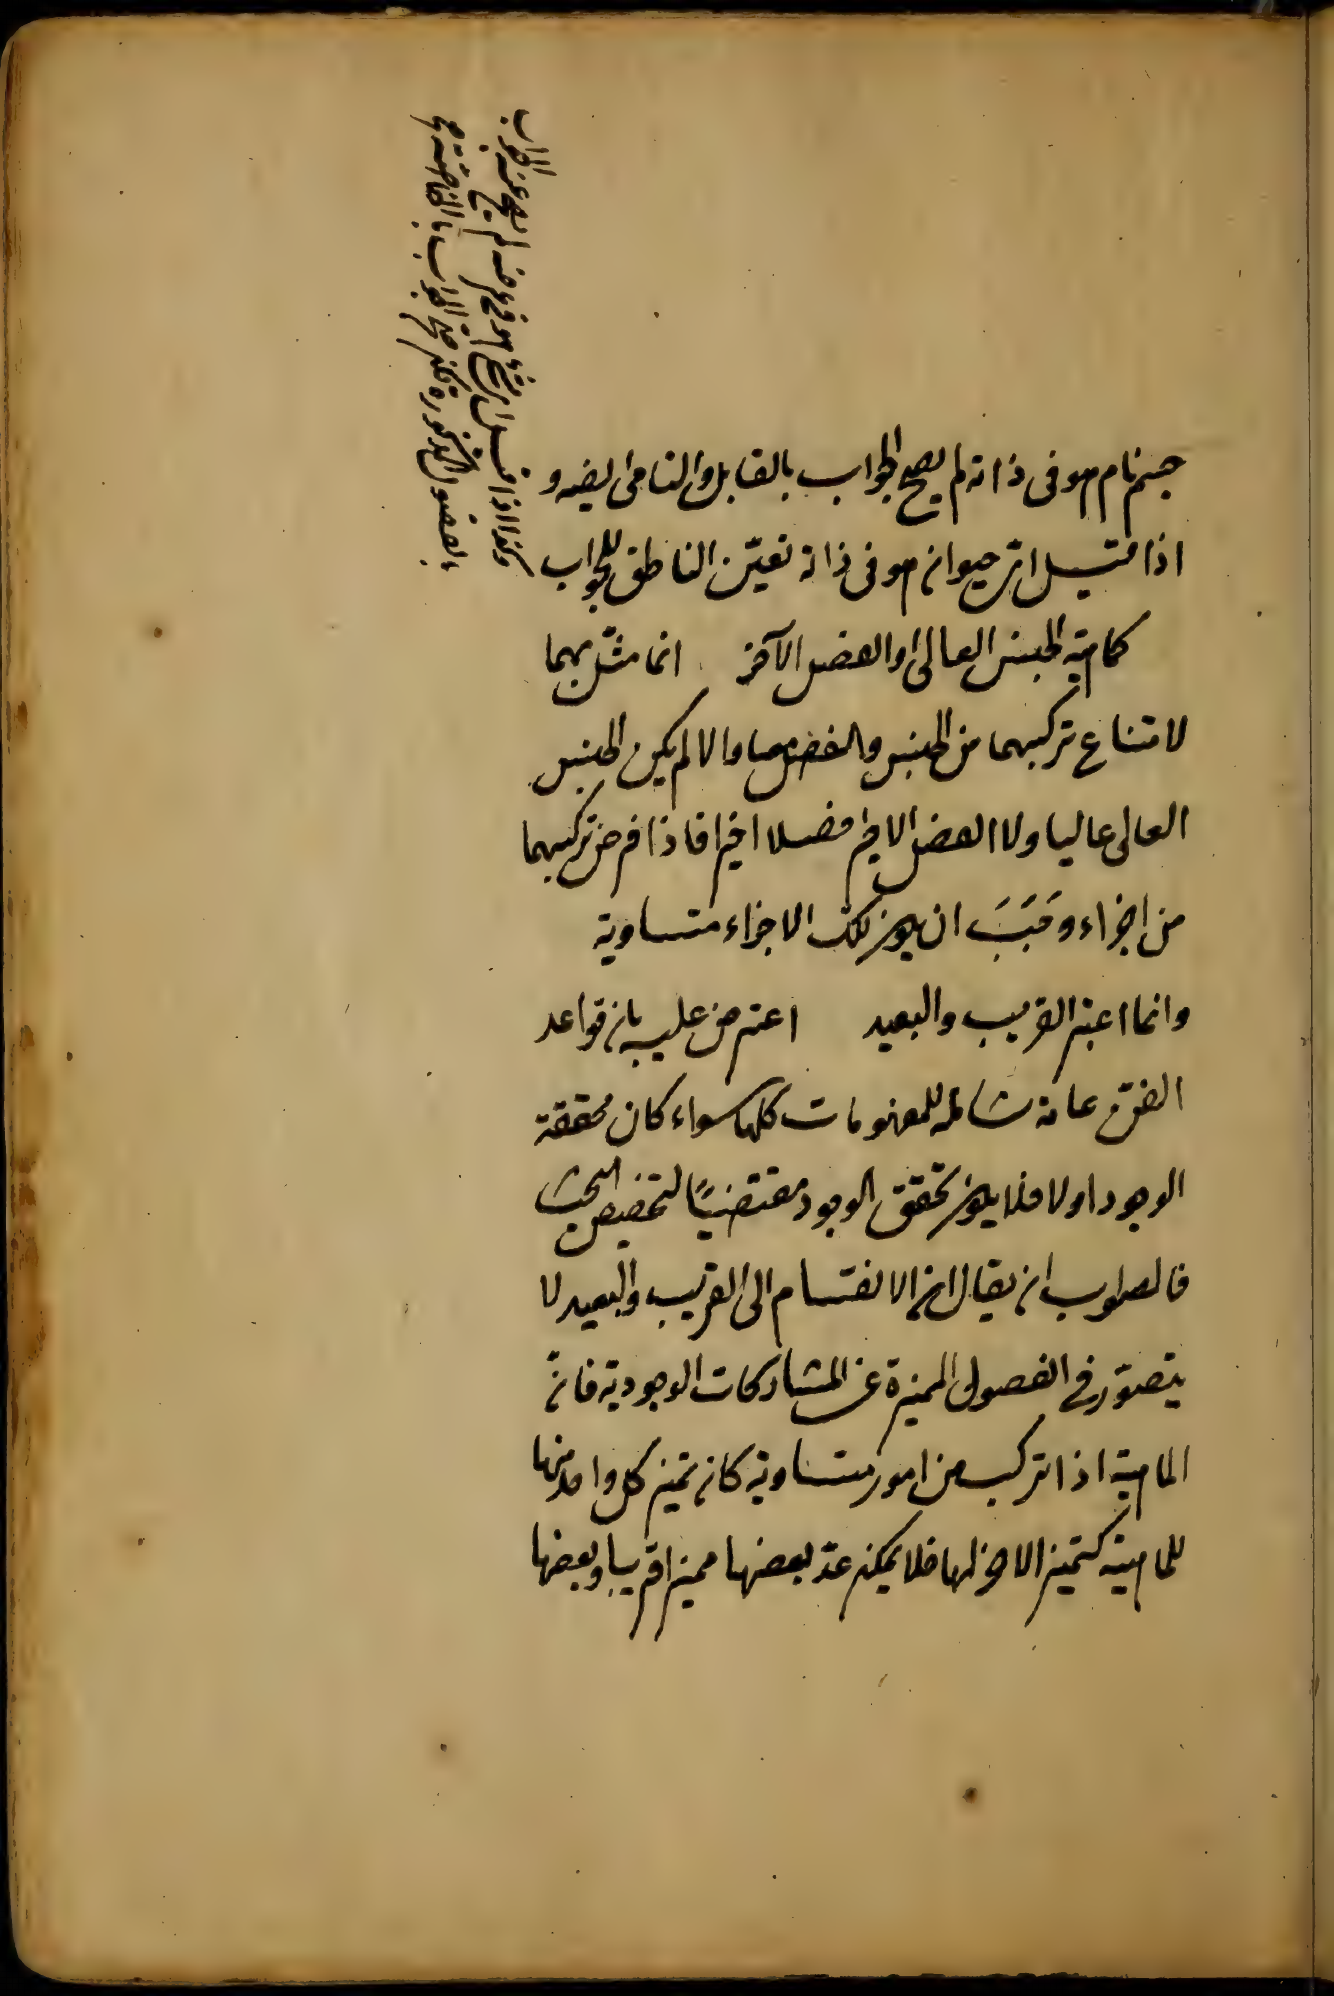 جسم نام هو فى ذاته لم يصح الجواب بالقابل والنامى ايضه و
اذا قيل اىّ حيوان هو فى ذاته تعيّن الناطق للجواب
كماهية الجنس العالى او الفصل الآخر انما مثّل بهما
لامتناع تركبهما من الجنس والفصل معا والا لم يكن الجنس
العالى عاليا ولا الفصل الاخير فصلا اخيرا فاذا فرض تركبهما
من اجزاء وَجَبَ ان يكون تلك الاجزاء متساوية
وانما اعتبر القريب والبعيد اعترض عليه بان قواعد
الفن عامة شاملة للمفهومات كلها سواء كان محققة
الوجود اولا فلا يكون تحقق الوجود مقتضيًا لتخصيص البحث
فالصواب ان يقال ان الانقسام الى القريب والبعيد لا
يتصوّر فى الفصول المميزة عن المشاركات الوجودية فانّ
الماهية اذا تركب من امور متساوية كان تميز كل واحد منها
للماهية كتميز الاخر لها فلا يمكن عدّ بعضها مميزا قريبا وبعضها
وكذا اذا قيل
الفصول المذكورة
الجواب